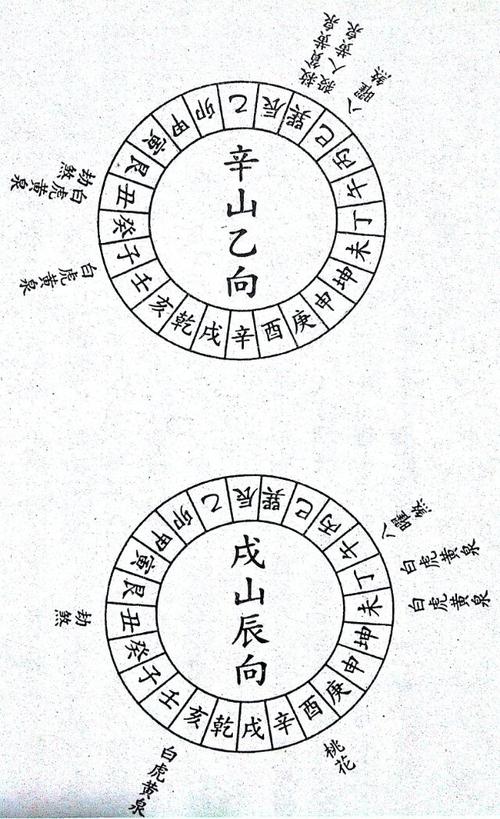 救貧黃泉
殺人黃泉
八曜煞
劫煞
白虎黃泉
白虎黃泉
乙辰巽巳丙午丁未坤申庚酉辛戌乾亥壬子癸丑艮寅甲卯
辛山乙向
八曜煞
白虎黃泉
白虎黃泉
桃花
白虎黃泉
劫煞
辰巽巳丙午丁未坤申庚酉辛戌乾亥壬子癸丑艮寅甲卯乙
戌山辰向